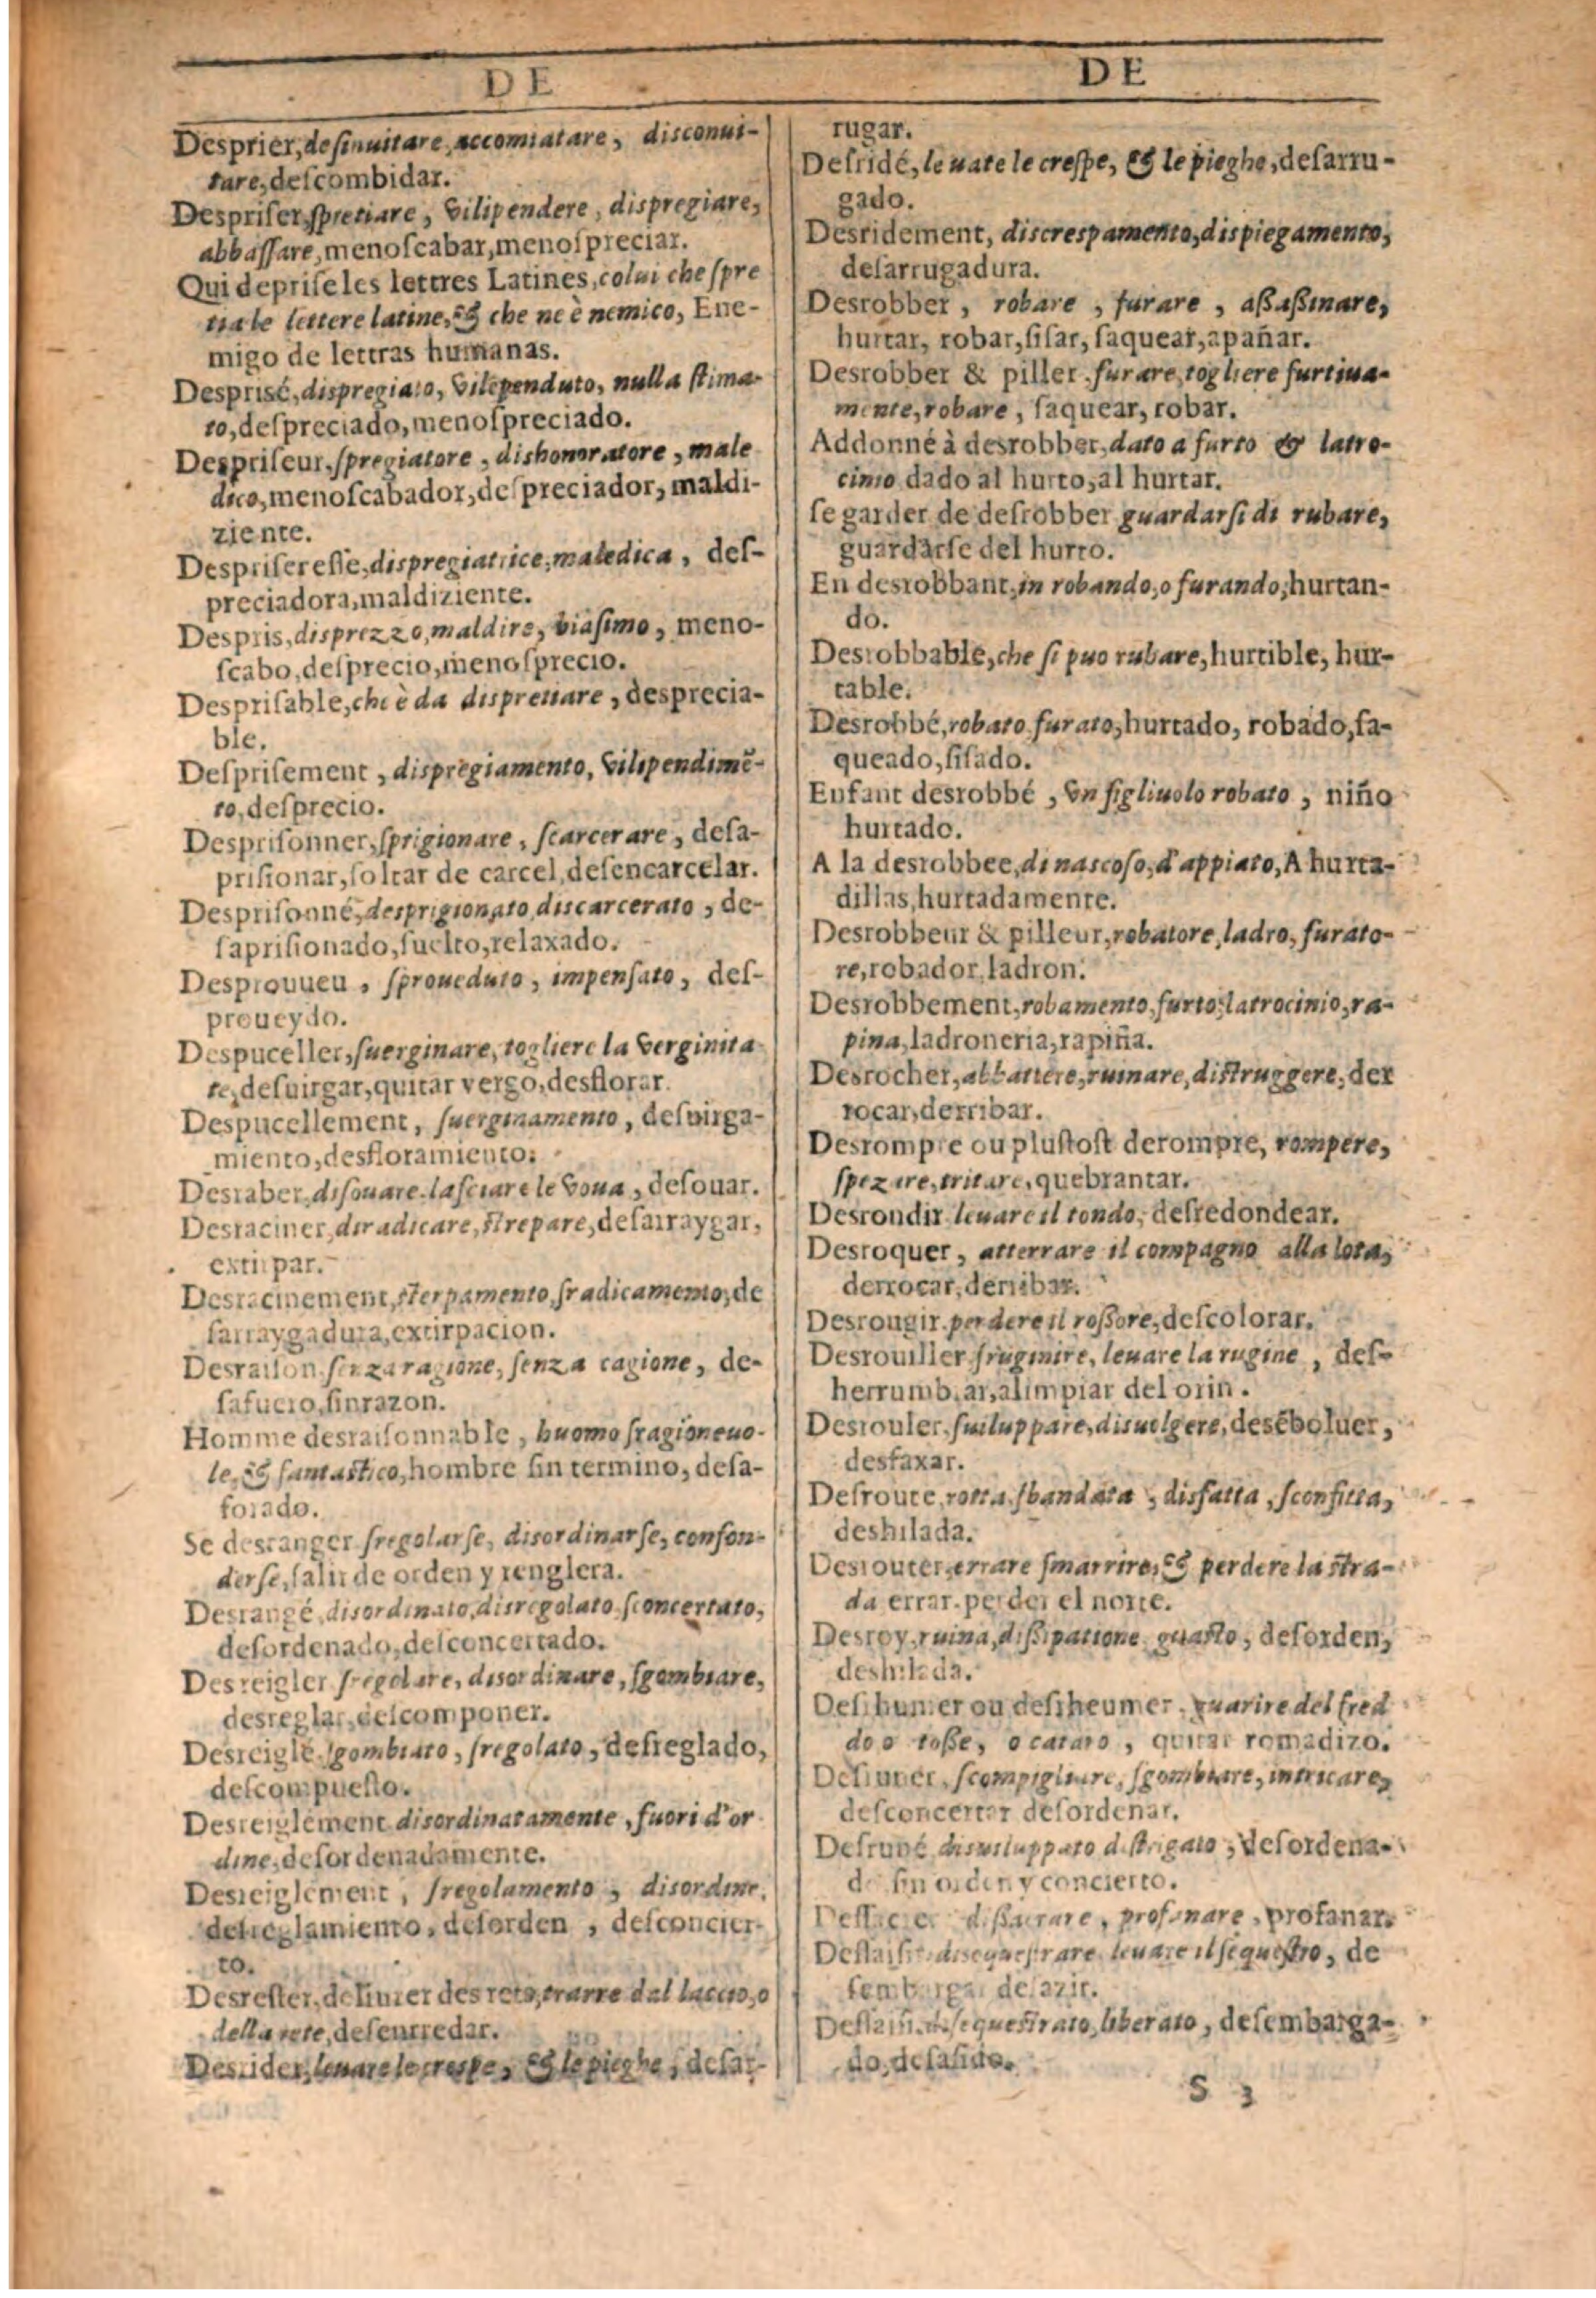 DE
Desprier, desinuitare, accomiatare, disconui-
tare, descombidar.
Despriſer, ſpretiare, vilipendere, dispregiare,
abbaſſare, menoſcabar, menoſpreciar.
Qui depriſe les lettres Latines, colui che ſpre
tia le lettere latine, & che ne è nemico, Ene-
migo de lettras humanas.
Desprisé, dispregiato, vilependuto, nulla ſtima-
to, deſpreciado, menoſpreciado.
Despriſeur, ſpregiatore, dishonoratore, male
dico, menoſcabador, deſpreciador, maldi-
ziente.
Despriſereſſe, dispregiatrice, maledica, deſ-
preciadora, maldiziente.
Despris, disprezzo, maldire, biaſimo, meno-
ſcabo, deſprecio, menoſprecio.
Despriſable, che è da dispretiare, desprecia-
ble.
Deſpriſement, dispregiamento, vilipendimē-
to, deſprecio.
Despriſonner, ſprigionare, ſcarcerare, deſa-
priſionar, ſoltar de carcel, deſencarcelar.
Despriſonné, desprigionato, discarcerato, de-
ſapriſionado, ſuelto, relaxado.
Desprouueu, ſproueduto, impenſato, deſ-
proueydo.
Despuceller, ſuerginare, togliere la verginita
te, deſuirgar, quitar vergo, desflorar.
Despucellement, ſuerginamento, deſvirga-
miento, desfloramiento.
Desraber, diſouare, laſciare le voua, deſouar.
Desraciner, diradicare, ſtrepare, deſarraygar,
extirpar.
Desracinement, ſterpamento, ſradicamento, de
ſarraygadura, extirpacion.
Desraiſon, ſenza ragione, ſenza cagione, de-
ſafuero, ſinrazon.
Homme desraiſonnable, huomo ſragioneuo-
le, & fantaſtico, hombre ſin termino, deſa-
forado.
Se desranger ſregolarſe, disordinarſe, confon-
derſe, ſalir de orden y renglera.
Desrangé, disordinato, disregolato, ſconcertato,
deſordenado, deſconcertado.
Desreigler ſregolare, disordinare, ſgombrare,
desreglar, deſcomponer.
Desreiglé, ſgombrato, ſregolato, deſreglado,
deſcompueſto.
Desreiglément disordinatamente, fuori d'or
dine, deſordenadamente.
Desreiglement, ſregolamento, disordine,
deſreglamiento, deſorden, deſconcier-
to.
Desreſter, deliurer des rets, trarre dal laccio, o
della rete, deſenrredar.
Desrider, leuare le creſpe, & le pieghe, deſar-
DE
rugar.
Deſridé, leuate le creſpe, & le pieghe, deſarru-
gado.
Desridement, discreſpamento, dispiegamento,
deſarrugadura.
Desrobber, robare, furare, aßaßinare,
hurtar, robar, ſiſar, ſaquear, apañar.
Desrobber & piller, furare, togliere furtiua-
mente, robare, ſaquear, robar.
Addonné à desrobber, dato a furto & latro-
cinio dado al hurto, al hurtar.
ſe garder de deſrobber guardarſi di rubare,
guardarſe del hurto.
En desrobbant, in robando, o furando, hurtan-
do.
Desrobbable, che ſi puo rubare, hurtible, hur-
table.
Desrobbé, robato furato, hurtado, robado, ſa-
queado, ſiſado.
Enfant desrobbé, vn figliuolo robato, niño
hurtado.
A la desrobbee, di naſcoſo, d'appiato, A hurta-
dillas, hurtadamente.
Desrobbeur & pilleur, robatore, ladro, furato-
re, robador, ladron.
Desrobbement, robamento, furto, latrocinio, ra-
pina, ladroneria, rapiña.
Desrocher, abbattere, ruinare, diſtruggere, der
rocar, derribar.
Desrompre ou pluſtoſt derompre, rompere,
ſpezare, tritare, quebrantar.
Desrondir leuare il tondo, deſredondear.
Desroquer, atterrare il compagno alla lota,
derrocar, derribar.
Desrougir perdere il roßore, deſcolorar.
Desrouiller ſruginire, leuare la rugine, deſ-
herrumbrar, alimpiar del orin.
Desrouler, ſuiluppare, disuolgere, desēboluer,
desfaxar.
Deſroute, rotta, ſbandata, disfatta, ſconfitta,
deshilada.
Desrouter, errare ſmarrire, & perdere la ſtra-
da errar, perder el norte.
Desroy, ruina, dißipatione, guaſto, deſorden,
deshilada.
Deſrhumer ou deſrheumer, guarire del fred
do o toße, o cataro, quitar romadizo.
Deſruner, ſcompigliare, ſgombrare, intricare,
deſconcertar deſordenar.
Deſruné disuiluppato diſtrigato, deſordena-
do ſin orden y concierto.
Deſſacrer dißacrare, profanare, profanar.
Deſſaiſir diſequeſtrare leuare il ſequeſtro, de
ſembargar deſazir.
Deſſaiſi, diſequeſtrato, liberato, deſembarga-
do, deſaſido.
S 3